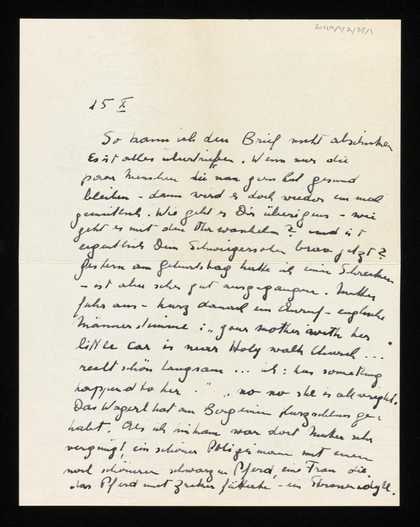 15 X
So kann ich den Brief nicht abschicken
Es ist alles übertrieben. Wenn nur die
paar Menschen die man gern hat gesund
bleiben - dann wird es doch wieder ein mal
gemütlich. Wie geht es Dir übrigens - wie
geht es mit den ? und ist
eigentlich Dein Schwiegersohn brav jetzt?
Gestern am Geburtstag hatte ich einen Schrecken
- ist aber sehr gut ausgegangen. Mutter
fuhr aus - kurz danach ein Anruf - englische
Männerstimme: "your mother with her
little car is near Holy walk Church ...
recht schön langsam ... ich: has something
happend to her. " "no no she is allright.
Das Wagerl hat am Berg einen Kurzschluss ge-
habt. Als ich hinkam war dort Mutter sehr
vergnügt, ein schöner Polizeimann mit einem
noch schöneren schwarzen Pferd, eine Frau die
das Pferd mit Zucker fütterte - ein